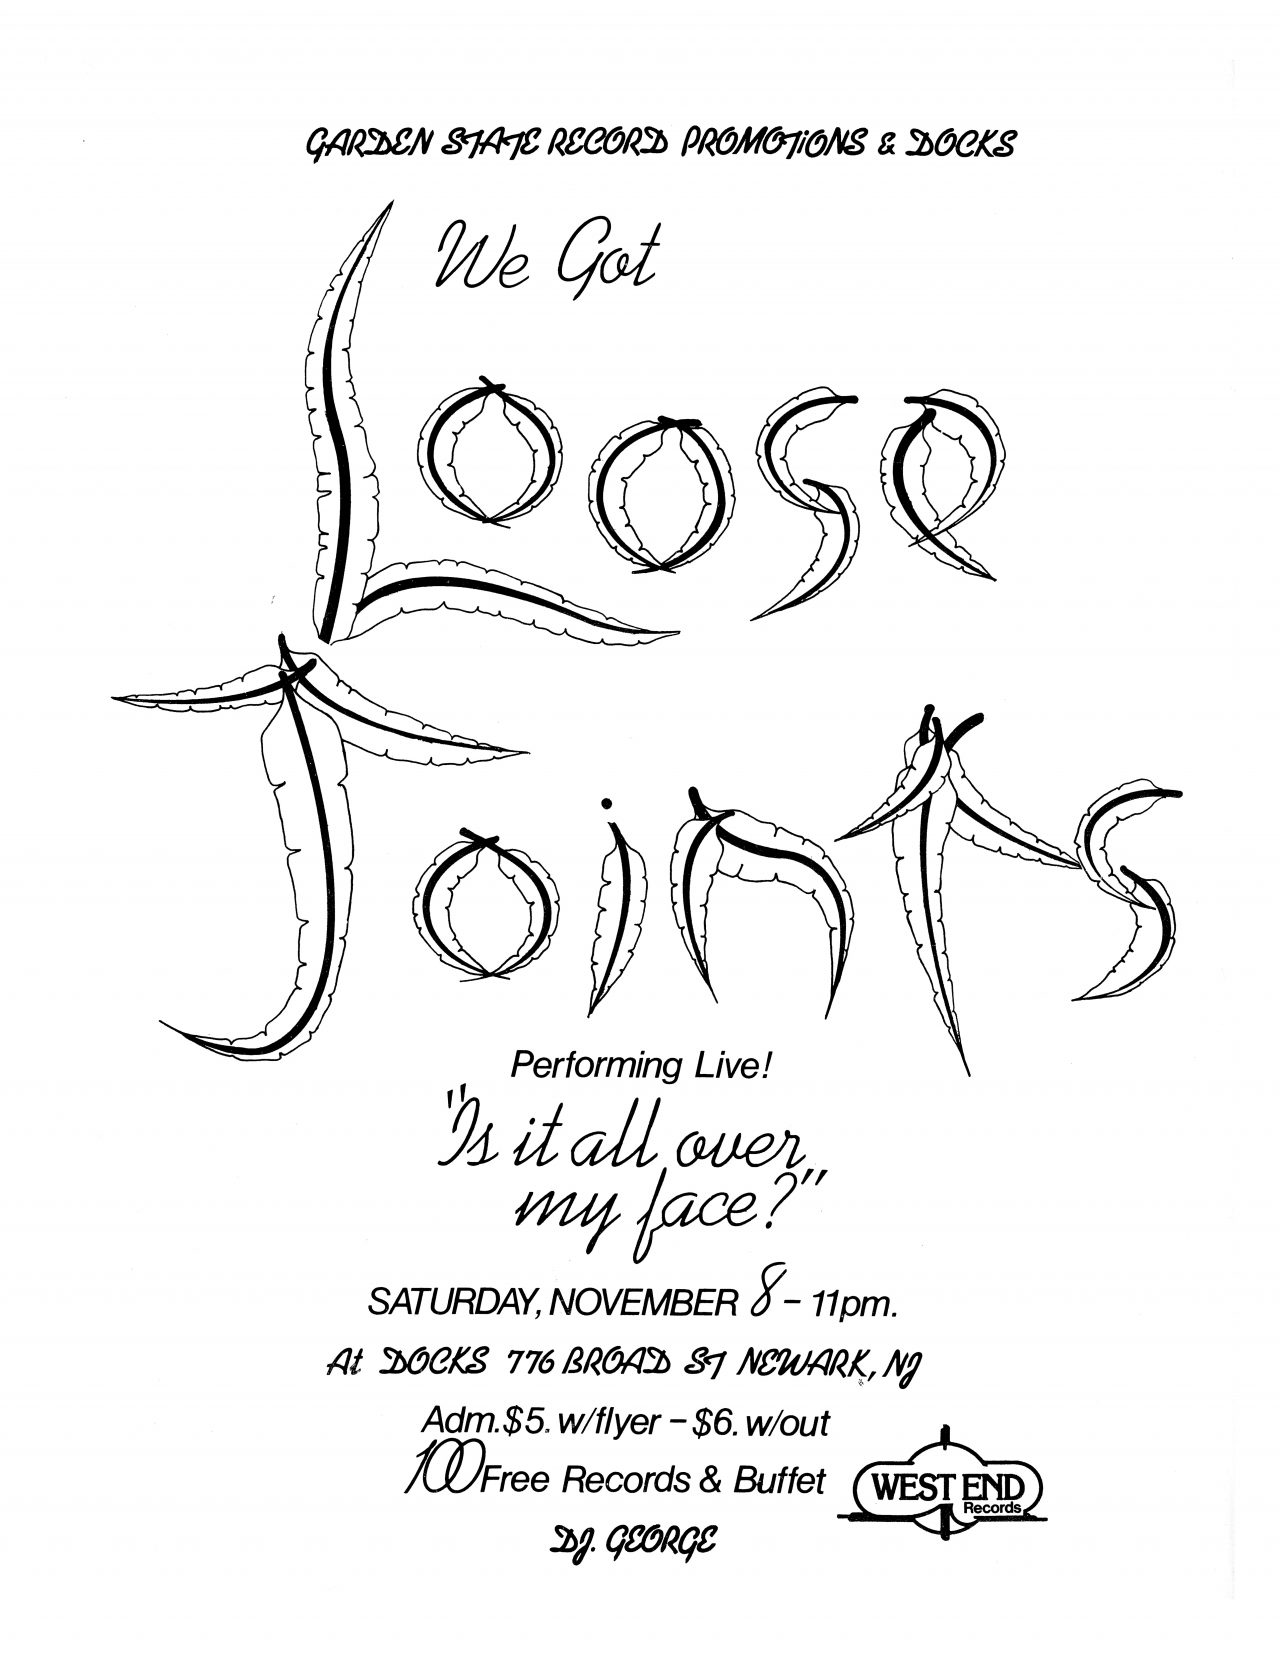 GARDEN STATE RECORD PROMOTiONS & DOCKS
We Got
Loose
Joints
Performing Live!
"Is it all over
my face?"
SATURDAY, NOVEMBER 8 – 11pm.
At DOCKS 776 BROAD ST NEWARK, NJ
Adm. $5. w/flyer – $6. w/out
100 Free Records & Buffet
WEST END
Records
DJ. GEORGE